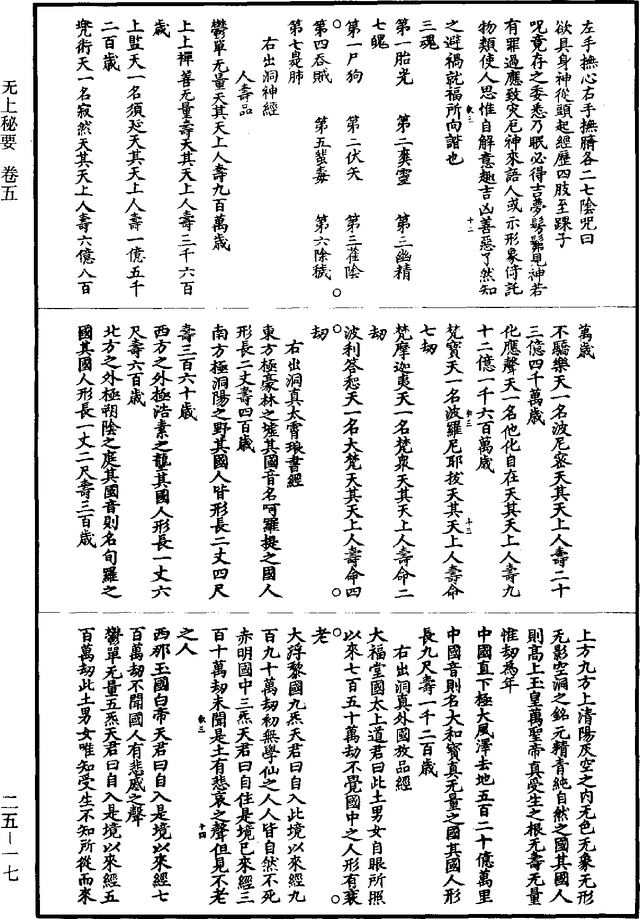 左手撫心右手撫臍各二七陰咒曰
欲具身神從頭起經歷四肢至踝子
咒竟存之委悉乃眠必得吉夢髣髴見神若
有罪過應致灾厄神來語人或示形象倚託
物類使人思惟自解意趣吉凶善惡了然知
之避禍就福所向諧也
三魂
第一胎光　第二爽靈　第三幽精
七魄
第一尸狗　第二伏矢　第三雀陰
第四吞賊　第五蜚毒　第六除穢
第七臭肺
右出洞神經
人壽品
鬱單无量天其天上人壽九百萬歲
上上禪善无量壽天其天上人壽三千六百
歲
上監天一名須延天其天上人壽一億五千
二百歲
兠術天一名寂然天其天上人壽六億八百
萬歲
不驕樂天一名波尼密天其天上人壽二十
三億四千萬歲
化應聲天一名他化自在天其天上人壽九
十二億一千六百萬歲
梵寶天一名波羅尼耶拔天其天上人壽命
七劫
梵摩迦夷天一名梵衆天其天上人壽命二
劫
波利答恕天一名大梵天其天上人壽命四
劫
右出洞真太霄琅書經
東方極豪林之墟其國音名呵羅提之國人
形長二丈壽四百歲
南方極洞陽之野其國人皆形長二丈四尺
壽三百六十歲
西方之外極浩素之壟其國人形長一丈六
尺壽六百歲
北方之外極朔陰之庭其國音則名旬羅之
國其國人形長一丈二尺壽三百歲
上方九方上清陽灰空之内无色无象无形
无影空洞之銘元精青純自然之國其國人
則高上玉皇萬聖帝真受生之根无壽无量
惟劫為年
中國直下極大風澤去地五百二十億萬里
中國音則名大和寶真无量之國其國人形
長九尺壽一千二百歲
右出洞真外國放品經
大福堂國太上道君曰此土男女自眼所照
以來七百五十萬劫不覺國中之人形有衰
老
大浮黎國九炁天君曰自入此境以來經九
百九十萬劫初無學仙之人人皆自然不死
赤明國中三炁天君曰自住是境已來經三
百十萬劫未聞是土有悲哀之聲但見不老
之人
西那玉國白帝天君曰自入是境以來經七
百萬劫不聞國人有悲感之聲
鬱單无量五炁天君曰自入是境以來經五
百萬劫此土男女唯知受生不知所從而來
无上秘要　卷五
二五—一七